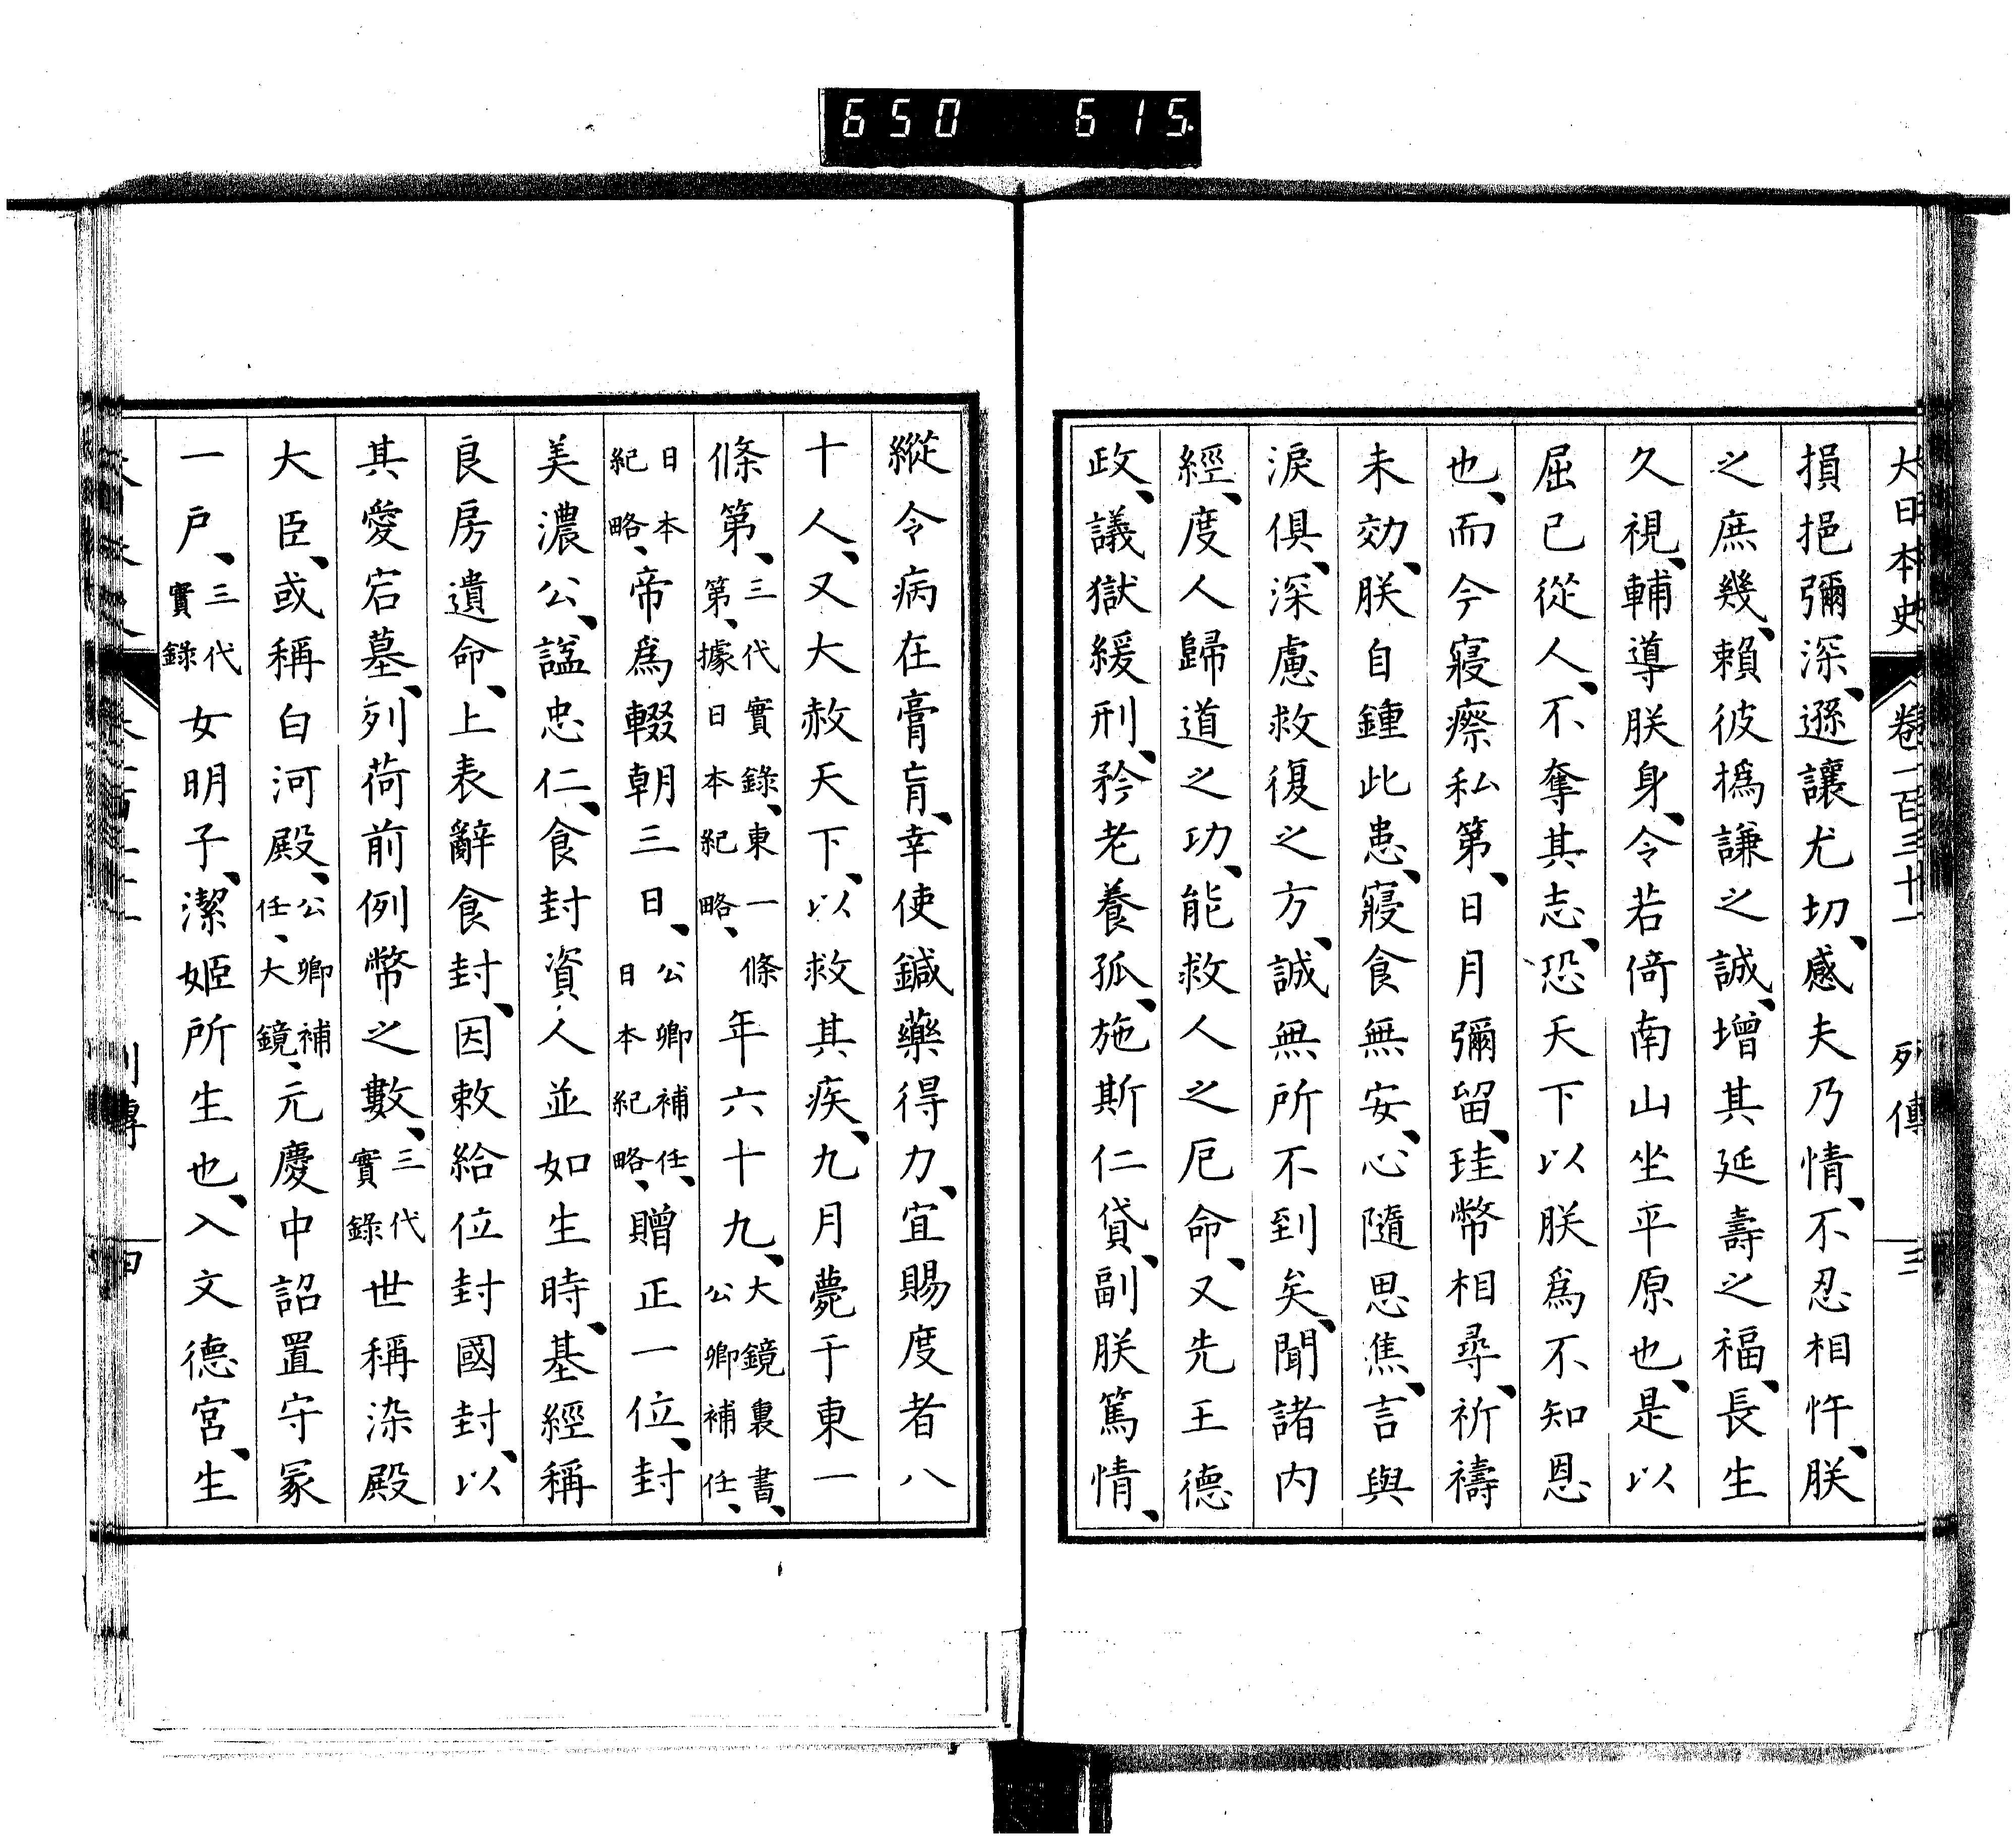 650 615.
大日本史 卷一百三十一 列傳 三
損挹彌深、遜讓尤切、感夫乃情、不忍相忤、朕
之庶幾、賴彼撝謙之誠、增其延壽之福、長生
久視、輔導朕身、令若倚南山坐平原也、是以
屈已從人、不奪其志、恐天下以朕爲不知恩
也、而今寢瘵私第、日月彌留、珪幣相尋、祈禱
未効、朕自鍾此患、寢食無安、心隨思焦、言與
淚俱、深慮救復之方、誠無所不到矣、聞諸内
經、度人歸道之功、能救人之厄命、又先王德
政、議獄緩刑、矜老養孤、施斯仁貸、副朕篤情、
縱令病在膏肓、幸使鍼藥得力、宜賜度者八
十人、又大赦天下、以救其疾、九月薨于東一
條第、三代實錄、東一條第、據日本紀略、年六十九、大鏡裏書、公卿補任、
日本紀略、帝爲輟朝三日、公卿補任、日本紀略、贈正一位、封
美濃公、諡忠仁、食封資人並如生時、基經稱
良房遺命、上表辭食封、因敕給位封國封、以
其愛宕墓、列荷前例幣之數、三代實錄世稱染殿
大臣、或稱白河殿、公卿補任、大鏡、元慶中詔置守冢
一戶、三代實錄女明子、潔姬所生也、入文德宮、生